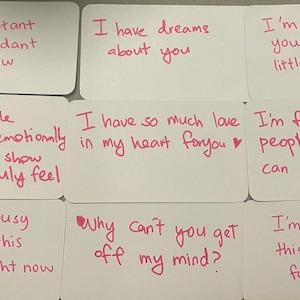 tant
dant
w
I have dreams
about you
I'm
you
littl
le
emotionally
show
uly feel
I have so much love
in my heart foryou ♥
I'm f
peopl
can
usy
his
ht now
Why can't you get
off my mind?
I'm
thi
fo